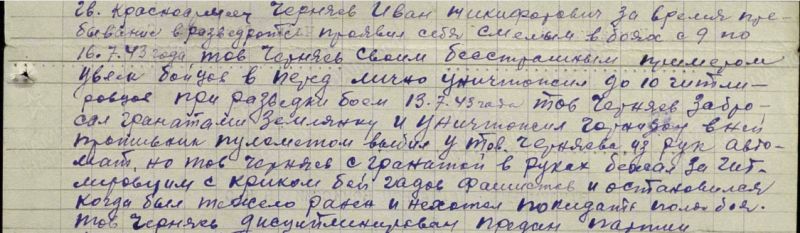 гв. Красноармеец Черняев Иван Никифорович за время пре-
бывание в разведроте проявил себя смелым. в боях с 9 по
16.7.43 года тов Черняев своим бесстрашным примером
увлек бойцов в перед лично уничтожил до 10 гитле-
ровцов при разведки боем 13.7.43 года тов Черняев забро-
сал гранатами землянку и уничтожил в ней
противник пулеметом выбил у тов. Черняева из рук авто-
мат, но тов Черняев с гранатой в руках бежал за гит-
леровцим с криком бей гадов фашистов и остановился
когда был тяжело ранен и нехотел покидать поле боя.
тов Черняев дисциплинирован предан партии